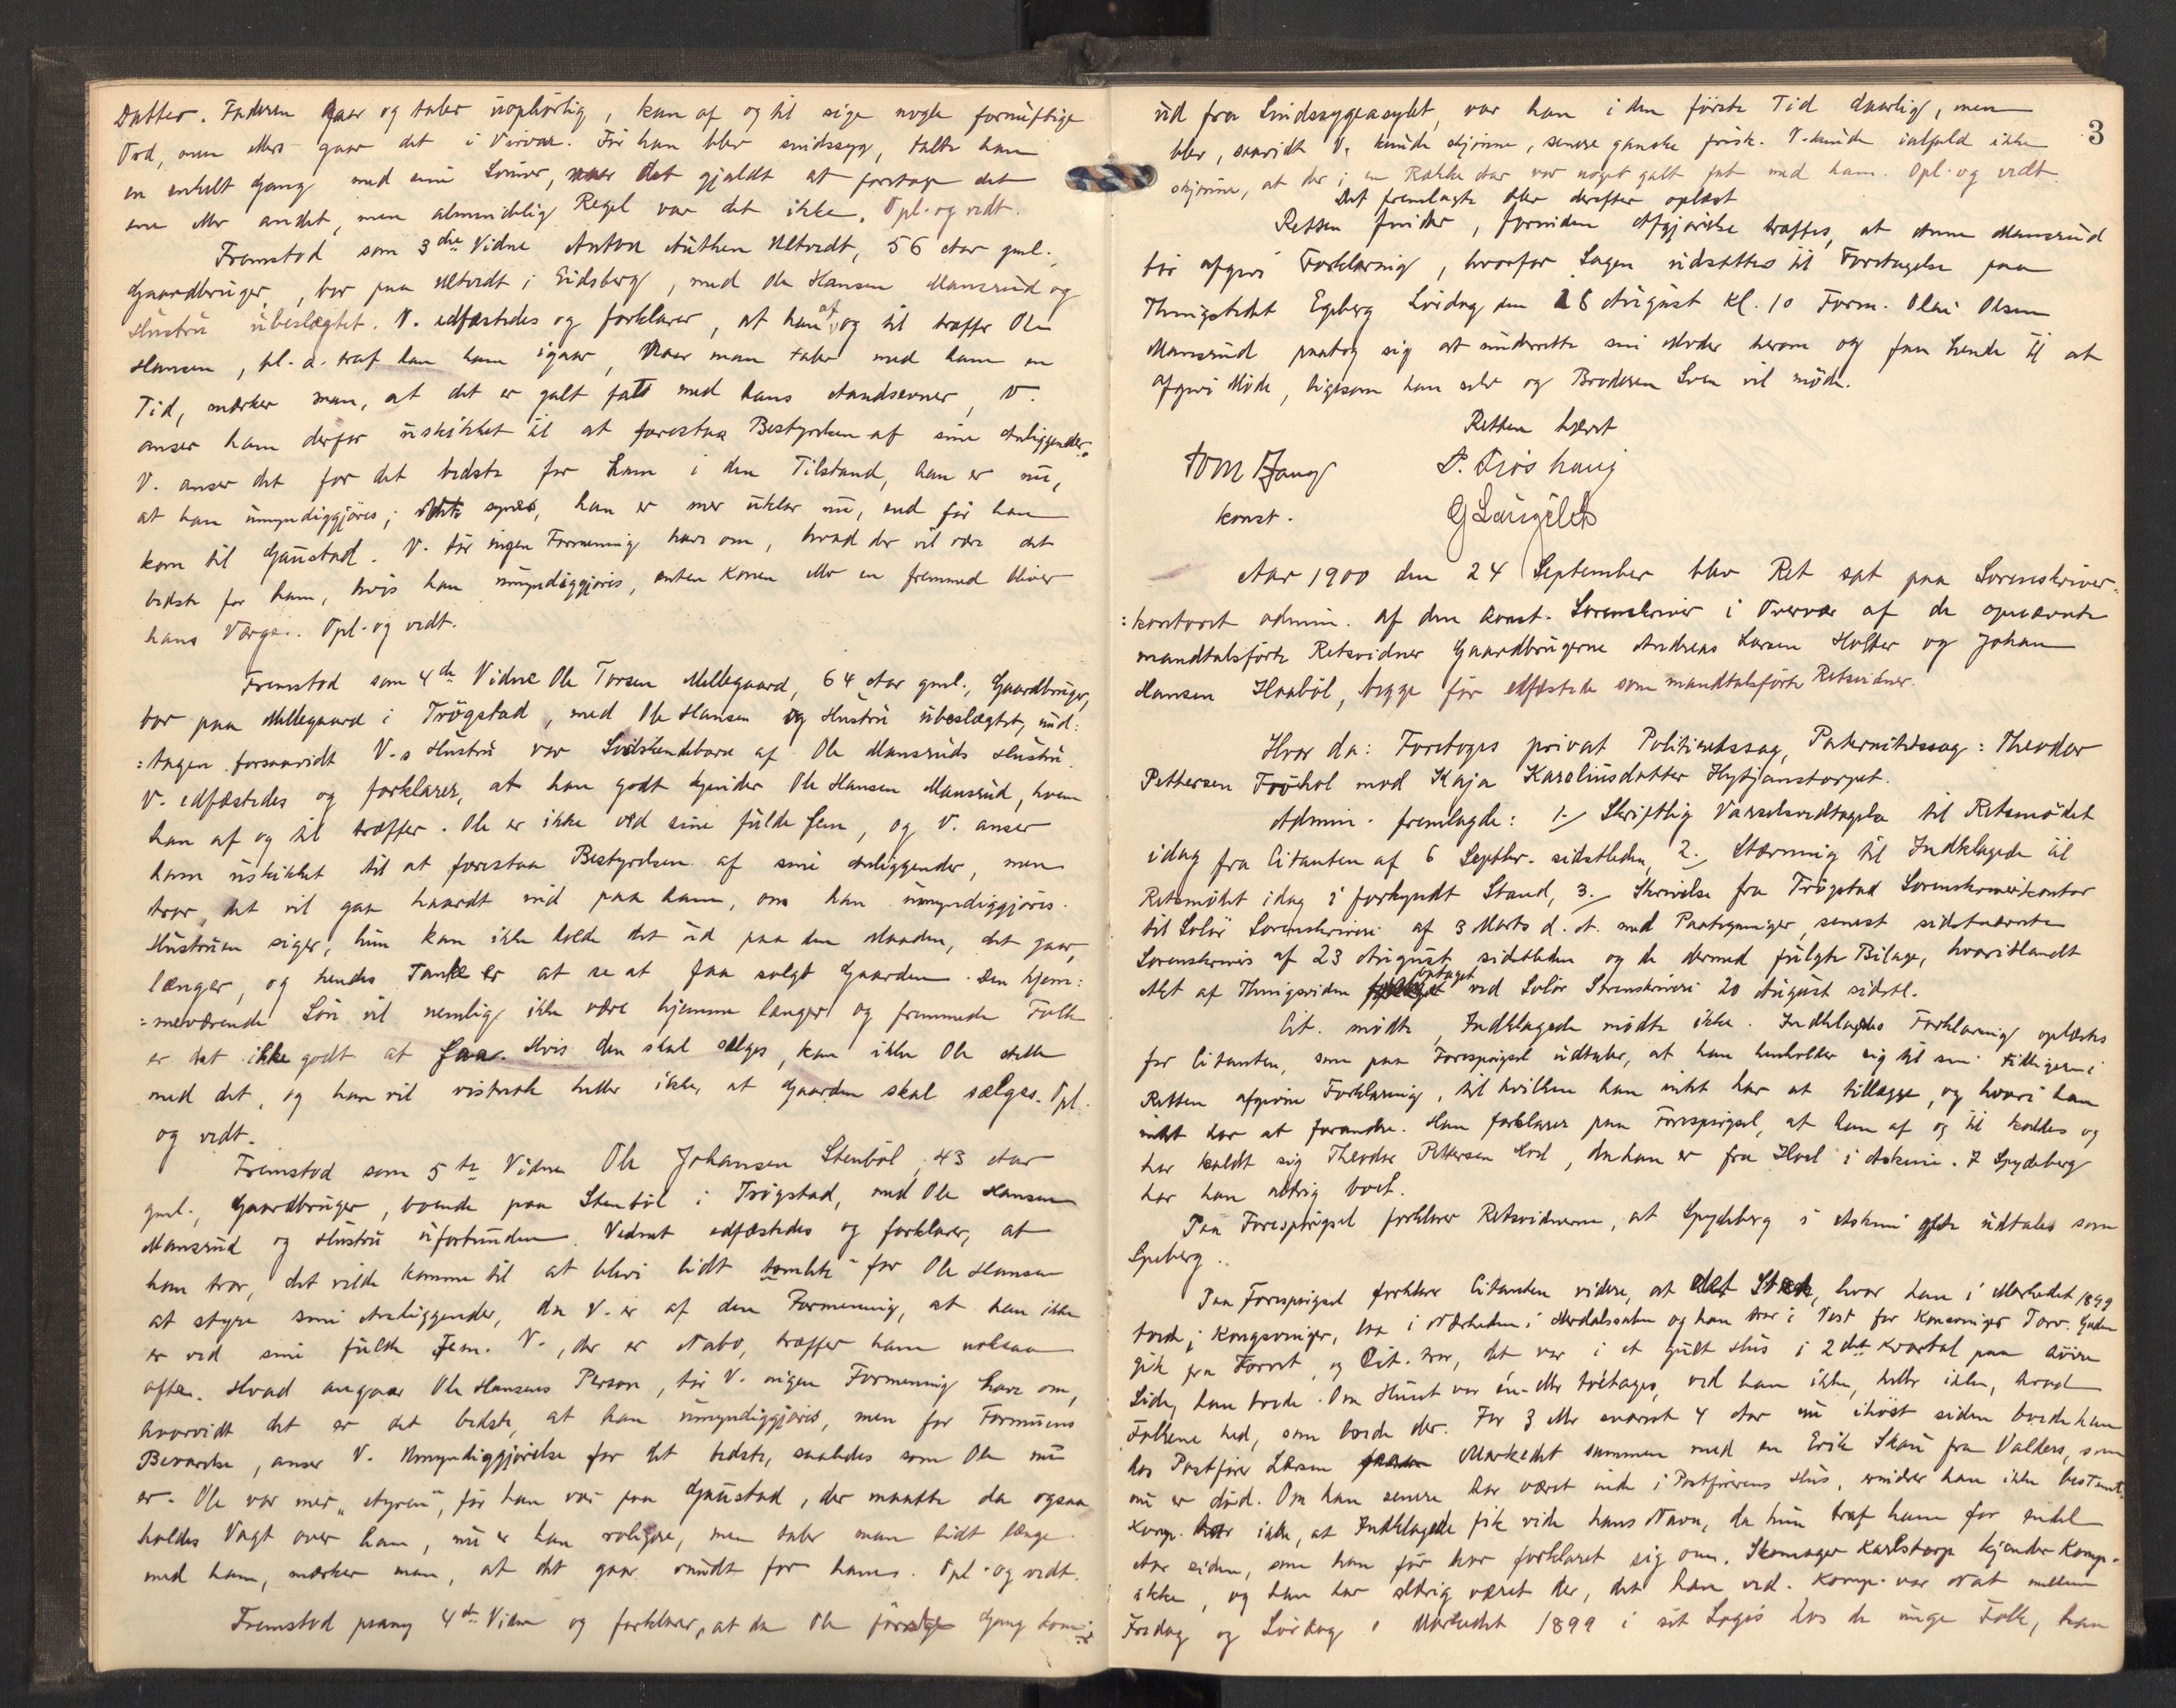 Datter. Faderen gaar og taler uophörlig, kan af og til sige nogle fornuftige
Ord, men ellers gaar det i Virvar. Før han blev sindssyg, talte han
en enkelt Gang med sine Sönner, naar det gjaldt at foretage det
ene eller andet, men almindelig Regel var det ikke. Opl. og vedt.
Fremstod som 3die Vidne Anton Authen Altvedt, 56 Aar gml.,
Gaardbruger, bor paa Altvedt i Eidsberg, med Ole Hansen Mansrud og
Hustru ubeslægtet. V. edfæstedes og forklarer, at han af og til træffer Ole
Hansen, bl. a. traf han ham igaar, Naar man taler med ham en
Tid, mærker man, at det er galt fatt med hans Aandsevner, V.
anser ham derfor uskikket til at forestaa Bestyrelsen af sine Anliggender.
V. anser det for det bedste for ham i den Tilstand, han er nu,
at han umyndiggjöres; synes, han er mer uklar nu, end før han
kom til Gaustad. V. tör ingen Formening have om, hvad der vil være det
bedste for ham, hvis han umyndiggjöres, enten Konen eller en fremmed bliver
hans Værge. Opl. og vedt.
Fremstod som 4de Vidne Ole Torsen Millegaard, 64 Aar gml., Gaardbruger,
bor paa Millegaard i Trögstad, med Ole Hansen og Hustru ubeslægtet, und:
:tagen forsaavidt V.s Hustru var Södskendebarn af Ole Mansruds Hustru.
V. edfæstedes og forklarer, at han godt kjender Ole Hansen Mansrud, hvem
han af og til træffer. Ole er ikke ved sine fulde fem, og V. anser
ham uskikket til at forestaa Bestyrelsen af sine Anliggender, men
tror, det vil gaa haardt ind paa ham, om han umyndiggjöres.
Hustruen siger, hun kan ikke holde det ud paa den Maaden, det gaar,
længer, og hendes Tanke er at se at faa solgt Gaarden. Den hjem:
:meværende Sön vil nemlig ikke være hjemme længer og fremmede Folk
er det ikke godt at faa. Hvis den skal sælges, kan ikke Ole stelle
med det, og han vil visstnok heller ikke, at Gaarden skal sælges. Opl.
og vedt.
Fremstod som 5te Vidne Ole Johansen Stenböl, 43 Aar
gml., Gaardbruger, boende paa Stenböl i Trögstad, med Ole Hansen
Mansrud og Hustru uforbunden. Vidnet edfæstedes og forklarer, at
han tror, det vilde komme til at blive lidt for Ole Hansen
at styre sine Anliggender, da V. er af den Formening, at han ikke
er ved sine fulde Fem. V., der er Nabo, træffer ham noksaa
ofte. Hvad angaar Ole Hansens Person, tör V. ingen Formening have om,
hvorvidt det er det bedste, at han umyndiggjöres, men for Formuens
Bevarelse, anser V. Umyndiggjörelse for det bedste, saaledes som Ole nu
er. Ole var mer „styren“, før han var paa Gaustad, der maatte da ogsaa
holdes Vagt over ham, nu er han roligere, men taler man lidt længe
med ham, mærker man, at det gaar rundt for ham. Opl. og vedt.
Fremstod paany 4de Vidne og forklarer, at da Ole förste Gang kom
3
ud fra Sindssygeasylet, var han i den förste Tid daarlig, men
blev, saavidt V. kunde skjönne, senere ganske frisk. V. kunde ialfald ikke
skjönne, at der i en Række Aar var noget galt fat med ham. Opl. og vedt.
Det fremlagte blev derefter oplæst
Retten finder, forinden Afgjörelse træffes, at Anne Mansrud
bör afgive Forklaring, hvorfor Sagen udsættes til Foretagelse paa
Thingstedet Egeberg Lördag den 18 August Kl. 10 Form. Olai Olsen
Mansrud paatog sig at underrette sin Moder herom og faa hende til at
afgive Möde, ligesom han selv og Broderen Sven vil möde.
Retten hævet
konst.
Aar 1900 den 24 September blev Ret sat paa Sorenskriver:
:kontoret admin. af den konst. Sorenskriver i Overvær af de opnævnte
mandtalsförte Retsvidner Gaardbrugerne Andreas Larsen Holter og Johan
Hansen Haaböl, begge för edfæstede som mandtalsförte Retsvidner.
Hvor da: Foretoges privat Politiretssag, Paternitetssag: Theodor
Pettersen mod Kaja Karoliusdatter
Admin. fremlagde: 1./ Skriftlig Varselsvedtagelse til Retsmödet
idag fra Citanten af 6 Septbr. sidstleden, 2./ Stævning til Indklagede til
Retsmödet idag i forkyndt Stand, 3./ Skrivelse fra Trögstad Sorenskriverkontor
til Solör Sorenskriveri af 3 Marts d. A. med Paategninger, senest sidstnævnte
Sorenskrivers af 23 August sidstleden og de dermed fulgte Bilage, hvoriblandt
Akt af Thingsvidne optaget ved Solör Sorenskriveri 20 August sidstl.
Cit. mödte, Indklagede mödte ikke. Indklagedes Forklaring oplæstes
for Citanten, som paa Forespörgsel udtaler, at han henholder sig til sin tidligere i
Retten afgivne Forklaring, til hvilken han intet har at tillægge, og hvori han
intet har at forandre. Han forklarer paa Forespörgsel, at han af og til kaldes og
har kaldt sig Theodor Pettersen Hoel, da han er fra Hoel i Askim. I Spydeberg
har han aldrig boet.
Paa Forespörgsel forklarer Retsvidnerne, at Spydeberg i Askim ofte udtales som
Speberg.
Paa Forespörgsel forklarer Citanten videre, at det Sted, hvor han i Markedet 1899
boede i Kongsvinger, laa i Nærheden i og han tror i Vest for Kongsvinger Torv. Gaden
gik fra Torvet, og Cit. tror, det var i et gult Hus i 2det Kvartal paa höire
Side, han boede. Om Huset var én- eller toetages, ved han ikke, heller ikke, hvad
Folkene hed, som boede der. For 3 eller snarest 4 Aar nu ihöst siden boede han
hos Postförer Larsen Markedet sammen med en Erik Skau fra Valders, som
nu er död. Om han senere har været inde i Postförerens Hus, erindrer han ikke bestemt.
Komp. tror ikke, at Indklagede fik vide hans Navn, da hun traf ham for endel
Aar siden, som han för har forklaret sig om. Skomager Karlstorp kjender Komp.
ikke, og han har aldrig været der, det han ved. Komp. var Nat mellem
Fredag og Lördag i Markedet 1899 i sit Logis hos de unge Folk, han